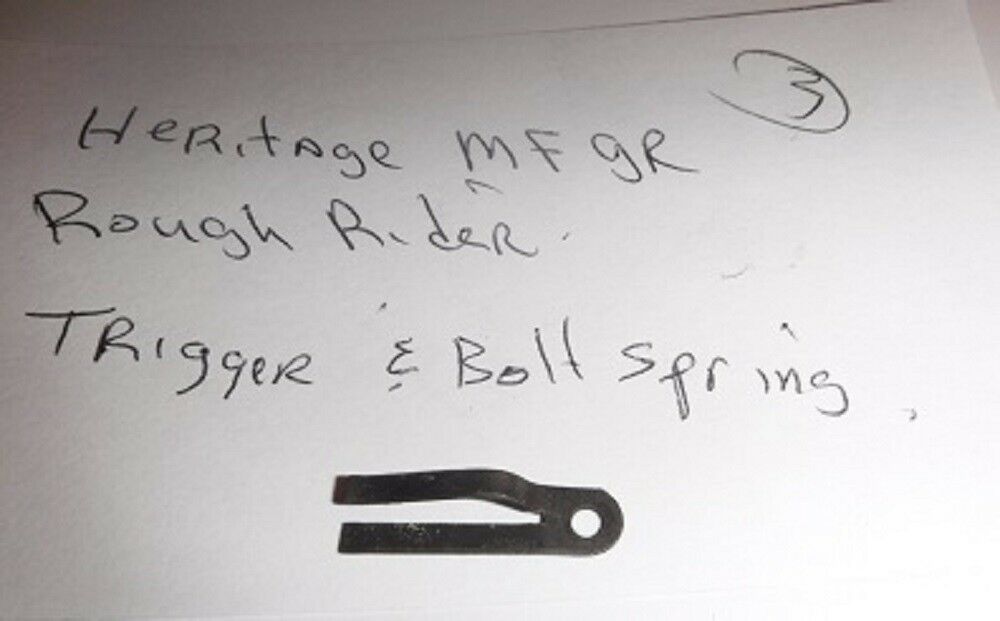 3
Heritage MFgR
Rough Rider.
TRigger & Bolt spring.